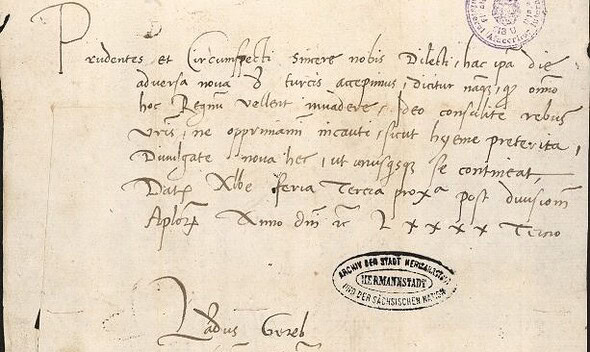 Prudentes et Circumspecti sincere nobis Dilecti, hac ipa die
adversa nova d turcis accepimus, dicitur namq, q omno
hoc Regnu vellent invadere, Ideo consulite rebus
vris, ne opprimami incauti, sicut hyeme preterita,
Divulgate nova hec, ut unusqsq se contineat,
Dat Albe feria Tercia proxa post divisione
Aplor Anno dni LXXXX Tercio
ARCHIV DER STADT HERMANNSTADT
HERMANNSTADT
UND DER SÄCHSISCHEN NATION
Ladius Gereb